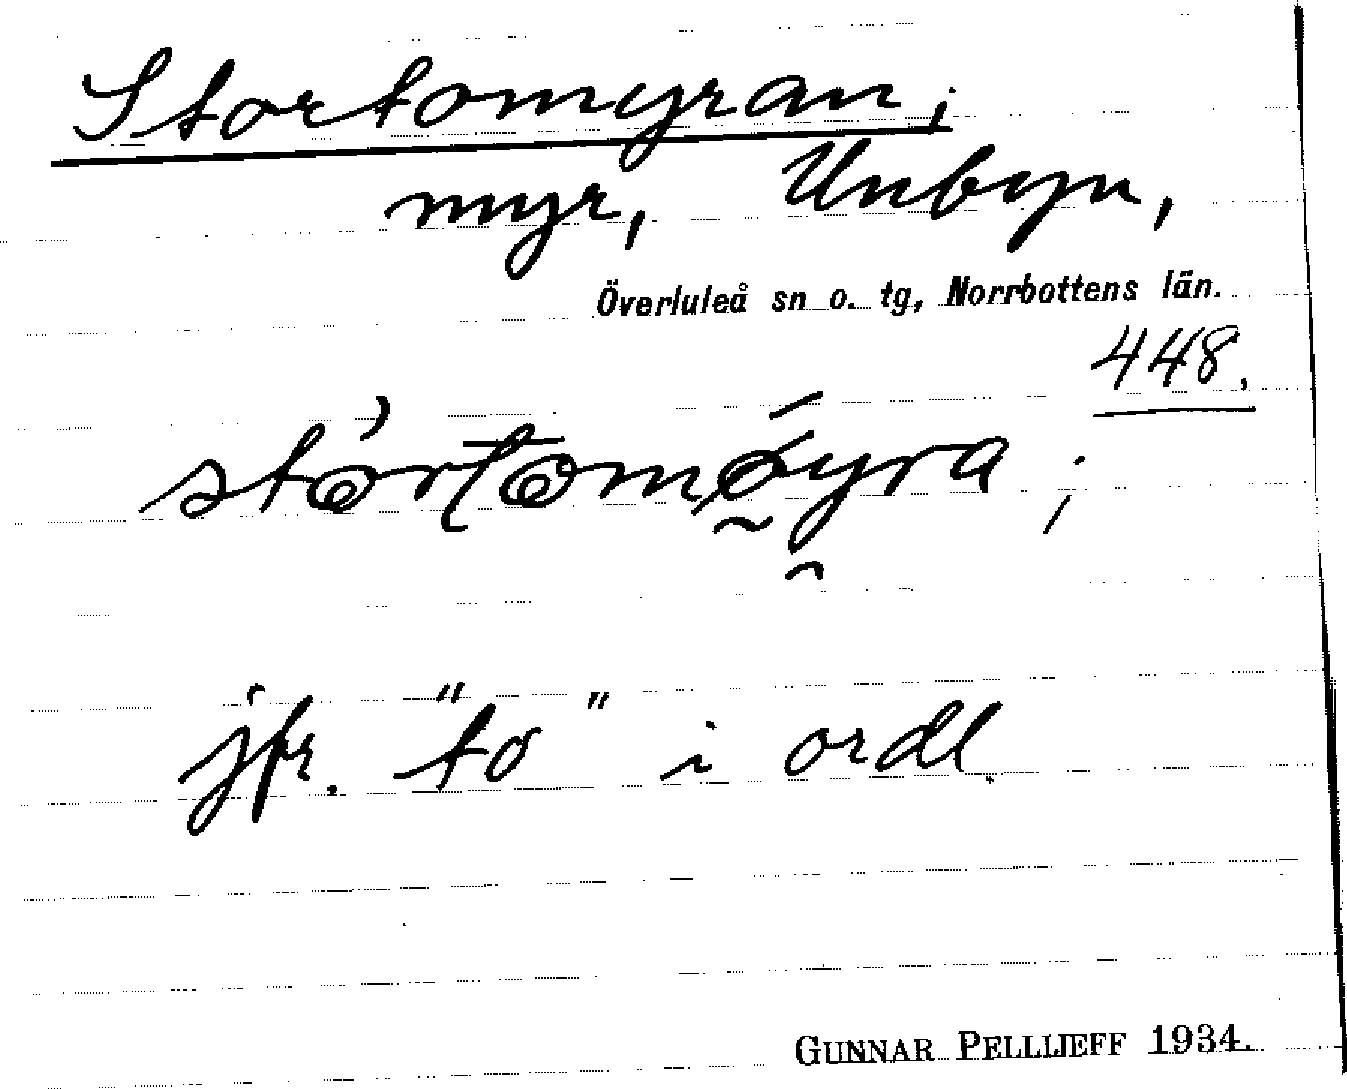 Stortomyran;
myr, Unbyn,
Överluleå sn o. tg, Norrbottens län.
448.
stortomøyra;
jfr. "to" i ordl.
GUNNAR PELLIJEFF 1934.